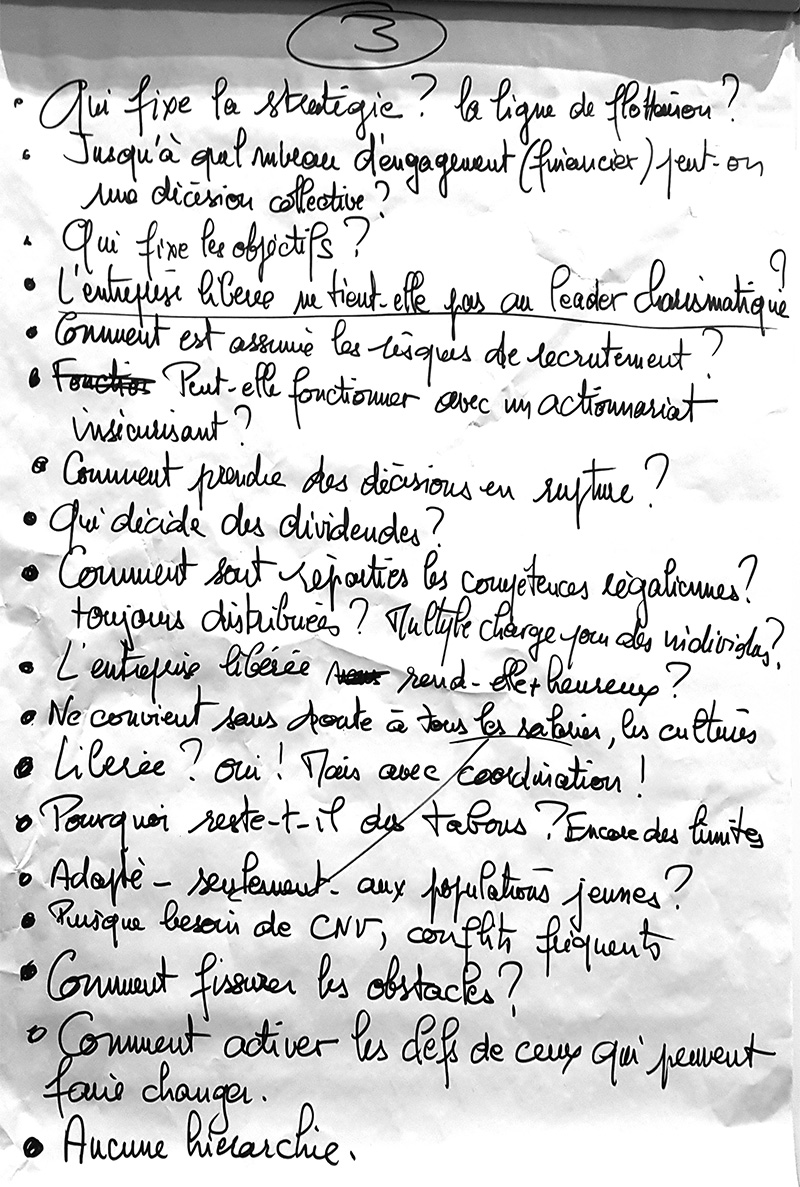 3
• Qui fixe la stratégie ? la ligne de flottaison ?
• Jusqu'à quel niveau d'engagement (financier) peut-on
une décision collective ?
• Qui fixe les objectifs ?
• L'entreprise libérée ne tient-elle pas au leader charismatique ?
• Comment est assumé les risques de recrutement ?
• Peut-elle fonctionner avec un actionnariat
insécurisant ?
• Comment prendre des décisions en rupture ?
• Qui décide des dividendes ?
• Comment sont réparties les compétences régaliennes ?
toujours distribuées ? Multiple charge pour des individus ?
• L'entreprise libérée rend-elle + heureux ?
• Ne convient sans doute à tous les salariés, les cultures
• Libérée ? oui ! Mais avec coordination !
• Pourquoi reste-t-il des tabous ? Encore des limites
• Adapté - seulement - aux populations jeunes ?
• Puisque besoin de CNV, conflits fréquents
• Comment fissurer les obstacles ?
• Comment activer les clefs de ceux qui peuvent
faire changer.
• Aucune hiérarchie.